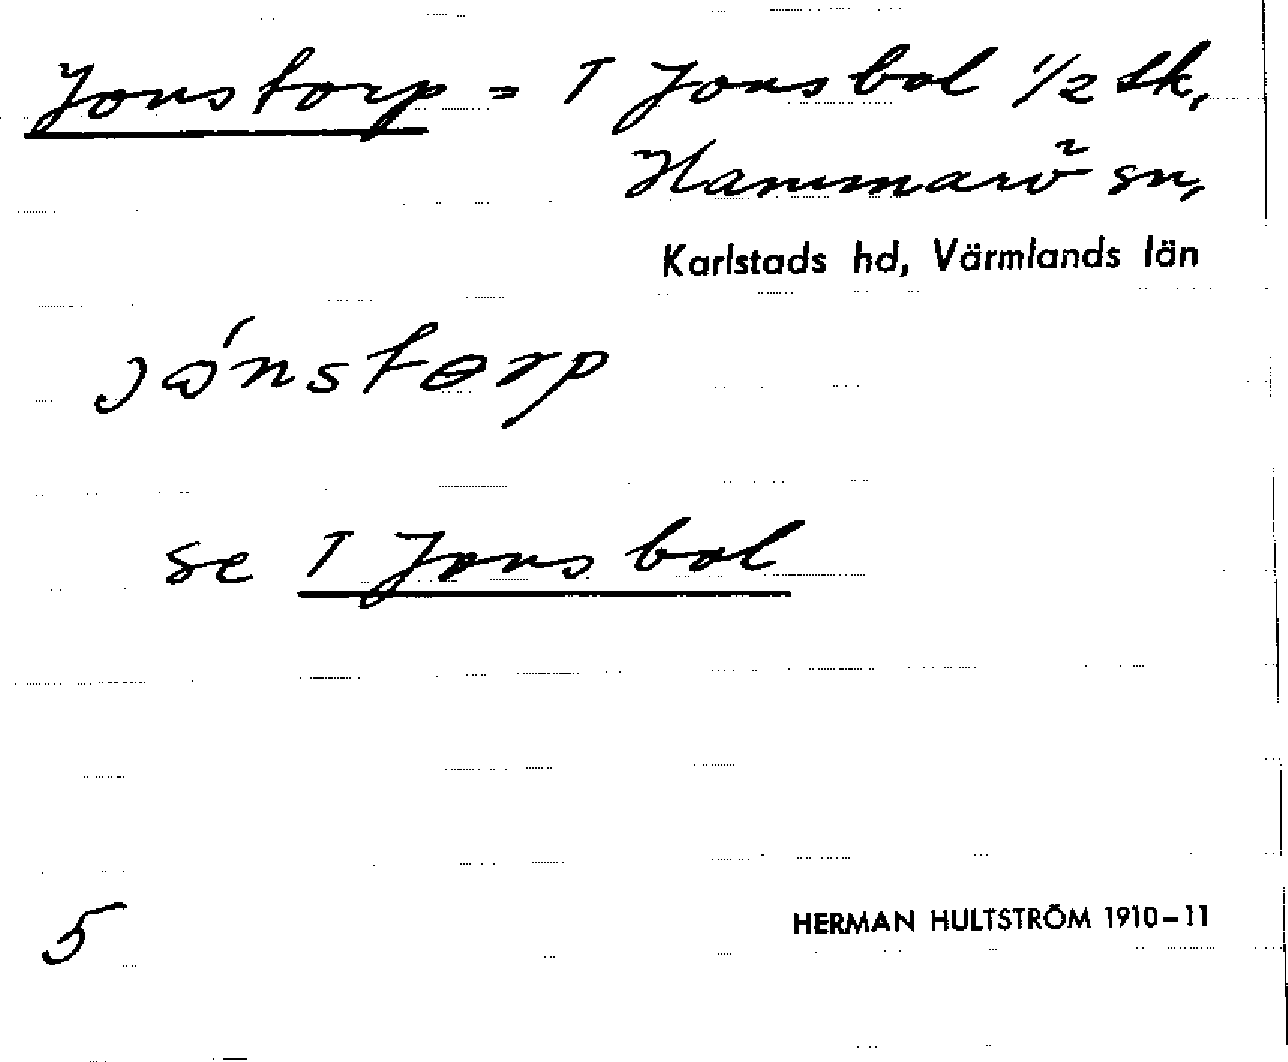 Jonstorp = T Jonsbol 1/2 sk,
Hammarö sn,
Karlstads hd, Värmlands län
jónstorp
se T Jonsbol
5
HERMAN HULTSTRÖM 1910-11